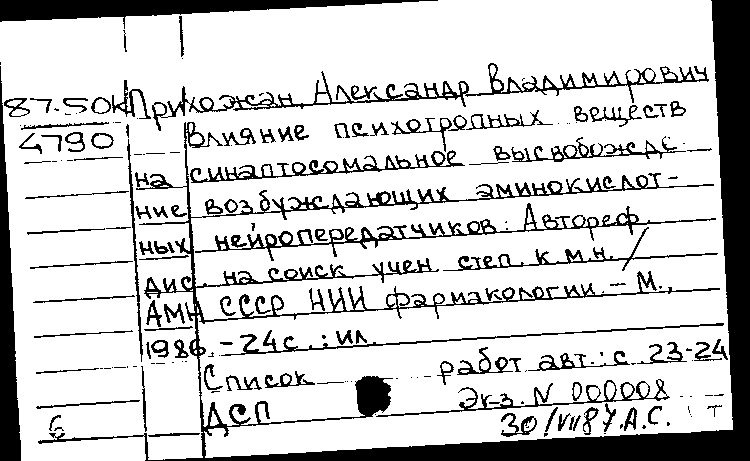 87-50К Прихожан, Александр Владимирович
4790 Влияние психотропных веществ
на синаптосомальное высвобожде-
ние возбуждающих аминокислот-
ных нейропередатчиков: Автореф.
дис. на соиск. учен. степ. к.м.н. /
АМН СССР, НИИ фармакологии. - М.,
1986. - 24 с. : ил.
Список работ авт.: с. 23-24
ДСП Экз. N 000008
6 30/VII 87. А.С. Т